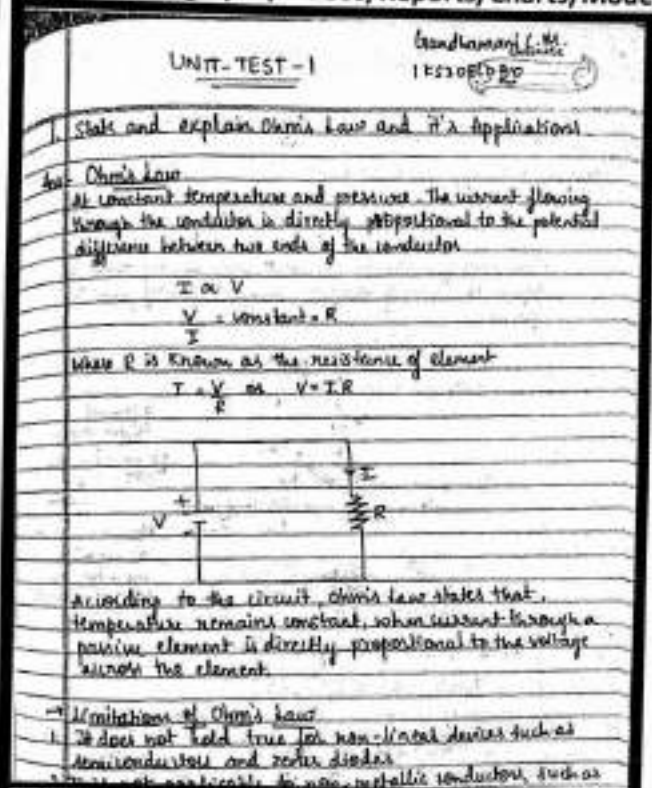 Reports, Charts, Mode
UNIT-TEST-1
1. State and explain Ohm's Law and it's Applications.
Ans- Ohm's Law
At constant temperature and pressure. The current flowing
through the conductor is directly proportional to the potential
difference between two ends of the conductor
I α V
V/I = constant = R
Where R is Known as the resistance of element
I = V/R or V = I.R
I
+
V
-
R
According to the circuit, Ohm's Law states that,
temperature remains constant, when current through a
passive element is directly proportional to the voltage
across the element.
→ Limitations of Ohm's Law
1. It does not hold true for non-linear devices such as
semiconductors and zener diodes
is not applicable to non-metallic conductors, such as